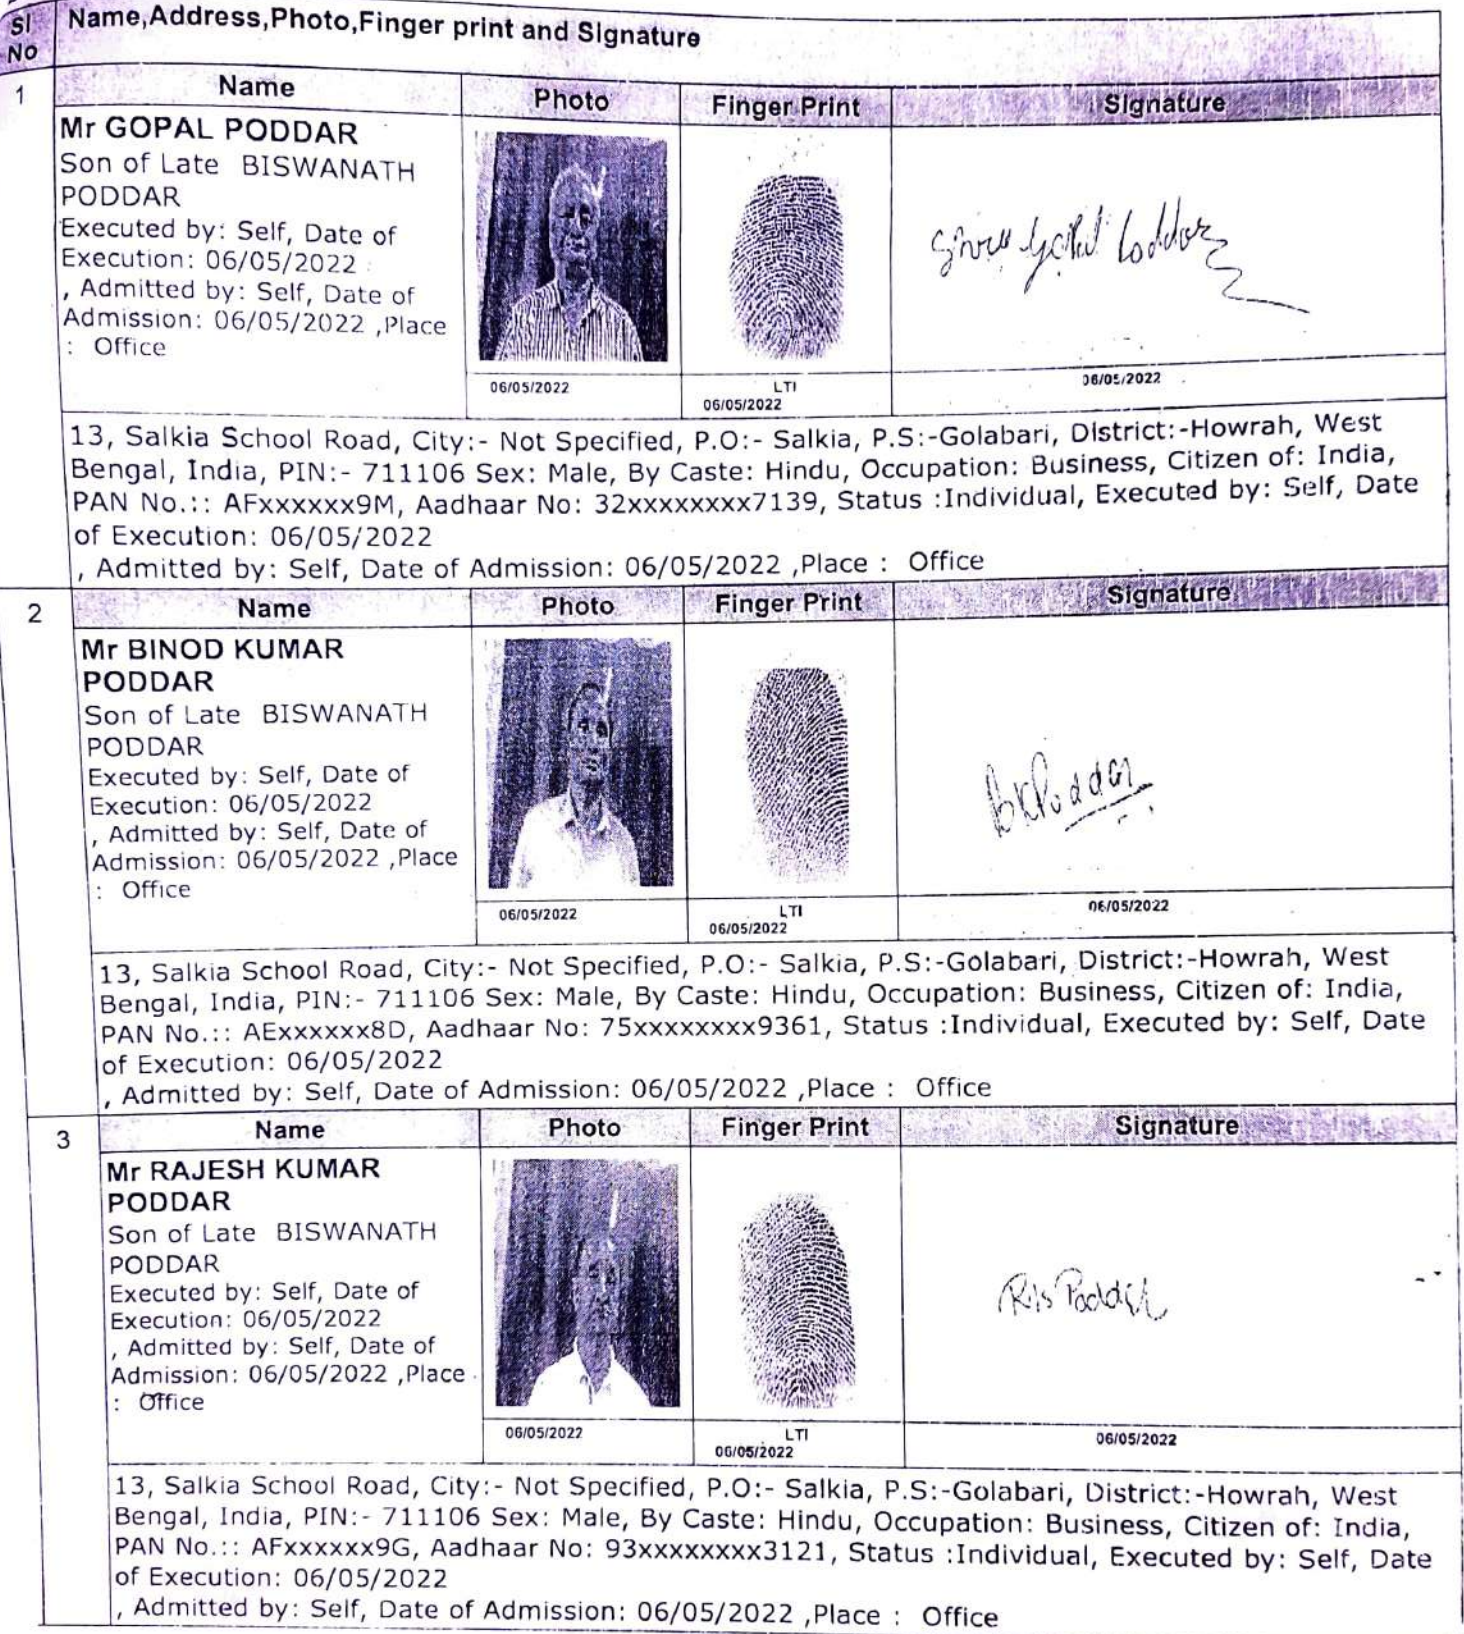 Sl No
Name,Address,Photo,Finger print and Signature
1
Name
Photo
Finger Print
Signature
Mr GOPAL PODDAR
Son of Late BISWANATH
PODDAR
Executed by: Self, Date of
Execution: 06/05/2022
, Admitted by: Self, Date of
Admission: 06/05/2022 ,Place
: Office
Poddar
06/05/2022
LTI
06/05/2022
06/05/2022
13, Salkia School Road, City:- Not Specified, P.O:- Salkia, P.S:-Golabari, District:-Howrah, West
Bengal, India, PIN:- 711106 Sex: Male, By Caste: Hindu, Occupation: Business, Citizen of: India,
PAN No.:: AFxxxxxx9M, Aadhaar No: 32xxxxxxxx7139, Status :Individual, Executed by: Self, Date
of Execution: 06/05/2022
, Admitted by: Self, Date of Admission: 06/05/2022 ,Place : Office
2
Name
Photo
Finger Print
Signature
Mr BINOD KUMAR
PODDAR
Son of Late BISWANATH
PODDAR
Executed by: Self, Date of
Execution: 06/05/2022
, Admitted by: Self, Date of
Admission: 06/05/2022 ,Place
: Office
BKPoddar
06/05/2022
LTI
06/05/2022
06/05/2022
13, Salkia School Road, City:- Not Specified, P.O:- Salkia, P.S:-Golabari, District:-Howrah, West
Bengal, India, PIN:- 711106 Sex: Male, By Caste: Hindu, Occupation: Business, Citizen of: India,
PAN No.:: AExxxxxx8D, Aadhaar No: 75xxxxxxxx9361, Status :Individual, Executed by: Self, Date
of Execution: 06/05/2022
, Admitted by: Self, Date of Admission: 06/05/2022 ,Place : Office
3
Name
Photo
Finger Print
Signature
Mr RAJESH KUMAR
PODDAR
Son of Late BISWANATH
PODDAR
Executed by: Self, Date of
Execution: 06/05/2022
, Admitted by: Self, Date of
Admission: 06/05/2022 ,Place
: Office
Poddar
06/05/2022
LTI
06/05/2022
06/05/2022
13, Salkia School Road, City:- Not Specified, P.O:- Salkia, P.S:-Golabari, District:-Howrah, West
Bengal, India, PIN:- 711106 Sex: Male, By Caste: Hindu, Occupation: Business, Citizen of: India,
PAN No.:: AFxxxxxx9G, Aadhaar No: 93xxxxxxxx3121, Status :Individual, Executed by: Self, Date
of Execution: 06/05/2022
, Admitted by: Self, Date of Admission: 06/05/2022 ,Place : Office